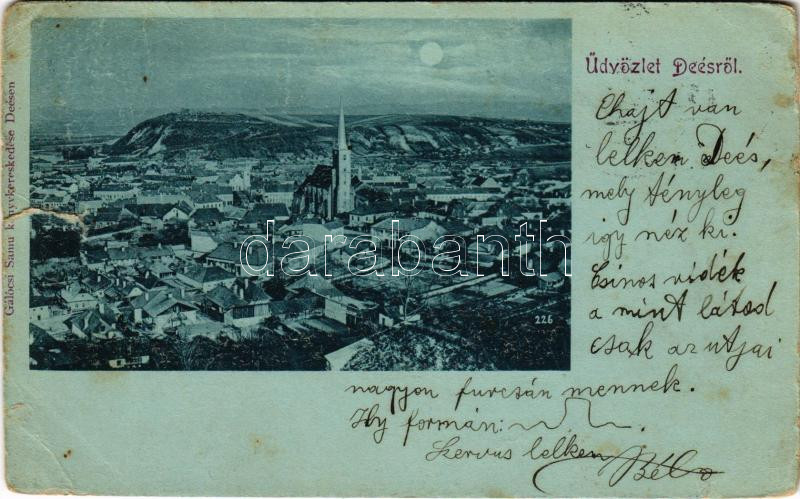 Üdvözlet Deésről.
Ehajt van
lelkem Deés,
mely tényleg
igy néz ki.
Csinos vidék
a mint látod
csak az utjai
nagyon furcsán mennek.
Ily formán:
Szervus lelkem Béla
Gálócsi Samu könyvkereskedése Deésen
darabanth
226